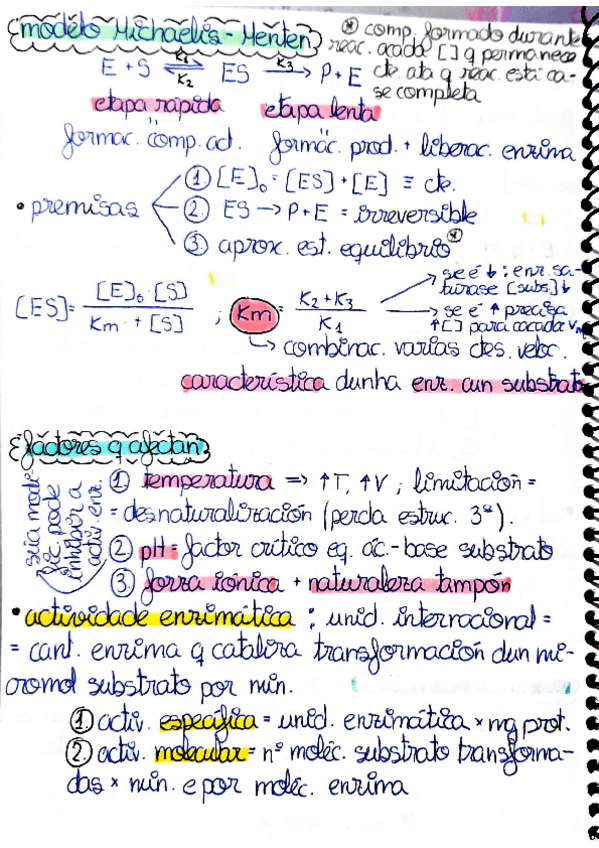 modelo Michaelis-Menten
* comp. formado durante
reac. acada [ ] q permanece
cte. ata q reac. está ca-
se completa
E + S ⇌ ES → P + E
K1
K2
K3
etapa rápida etapa lenta
formac. comp. act. formac. prod. + liberac. enzima
• premisas
① [E]₀ = [ES] + [E] ≡ cte.
② ES → P + E = irreversible
③ aprox. est. equilibrio *
[ES] = [E]₀ · [S] / Km + [S] ; Km = K2 + K3 / K1
→ se é ↓ : enz. sa-
turase [subs] ↓
→ se é ↑ precisa
↑ [ ] para cacada Vm
↳ combinac. varias ctes. veloc.
característica dunha enz. cun substrato
factores q afectan
súa modi-
fic pode
inhibir a
activ. enz.
① temperatura ⇒ ↑T, ↑V ; limitación =
= desnaturalización (perda estruc. 3ª).
② pH = factor crítico eq. ác.-base substrato
③ forza iónica + natureza tampón
• actividade enzimática : unid. internacional =
= cant. enzima q cataliza transformación dun mi-
cromol substrato por min.
① activ. específica = unid. enzimática × mg prot.
② activ. molecular = nº moléc. substrato transforma-
das × min. e por moléc. enzima